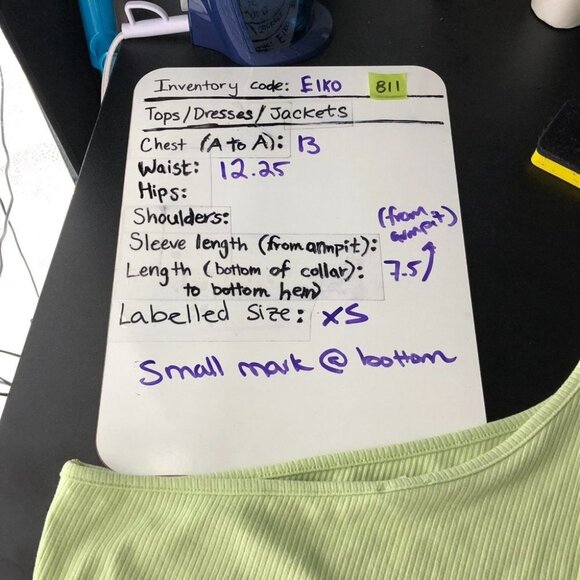 Inventory code: EIKO 811
Tops/Dresses/Jackets
Chest (A to A): 13
Waist: 12.25
Hips:
Shoulders:
(from armpit)
Sleeve length (from armpit):
Length (bottom of collar): 7.5
to bottom hem)
Labelled Size: XS
Small mark @ bottom